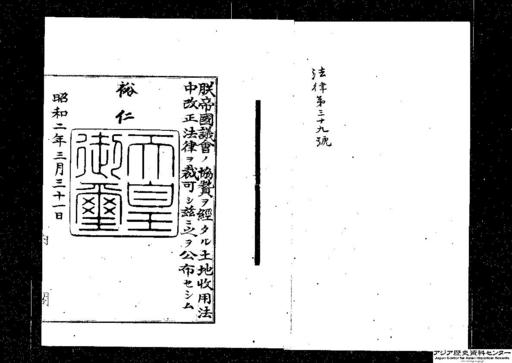 法律第三十九號
朕帝國議會ノ協賛ヲ經タル土地收用法
中改正法律ヲ裁可シ茲ニ之ヲ公布セシム
裕仁
天皇
御璽
昭和二年三月三十一日
内
閣
アジア歴史資料センター
Japan Center for Asian Historical Records